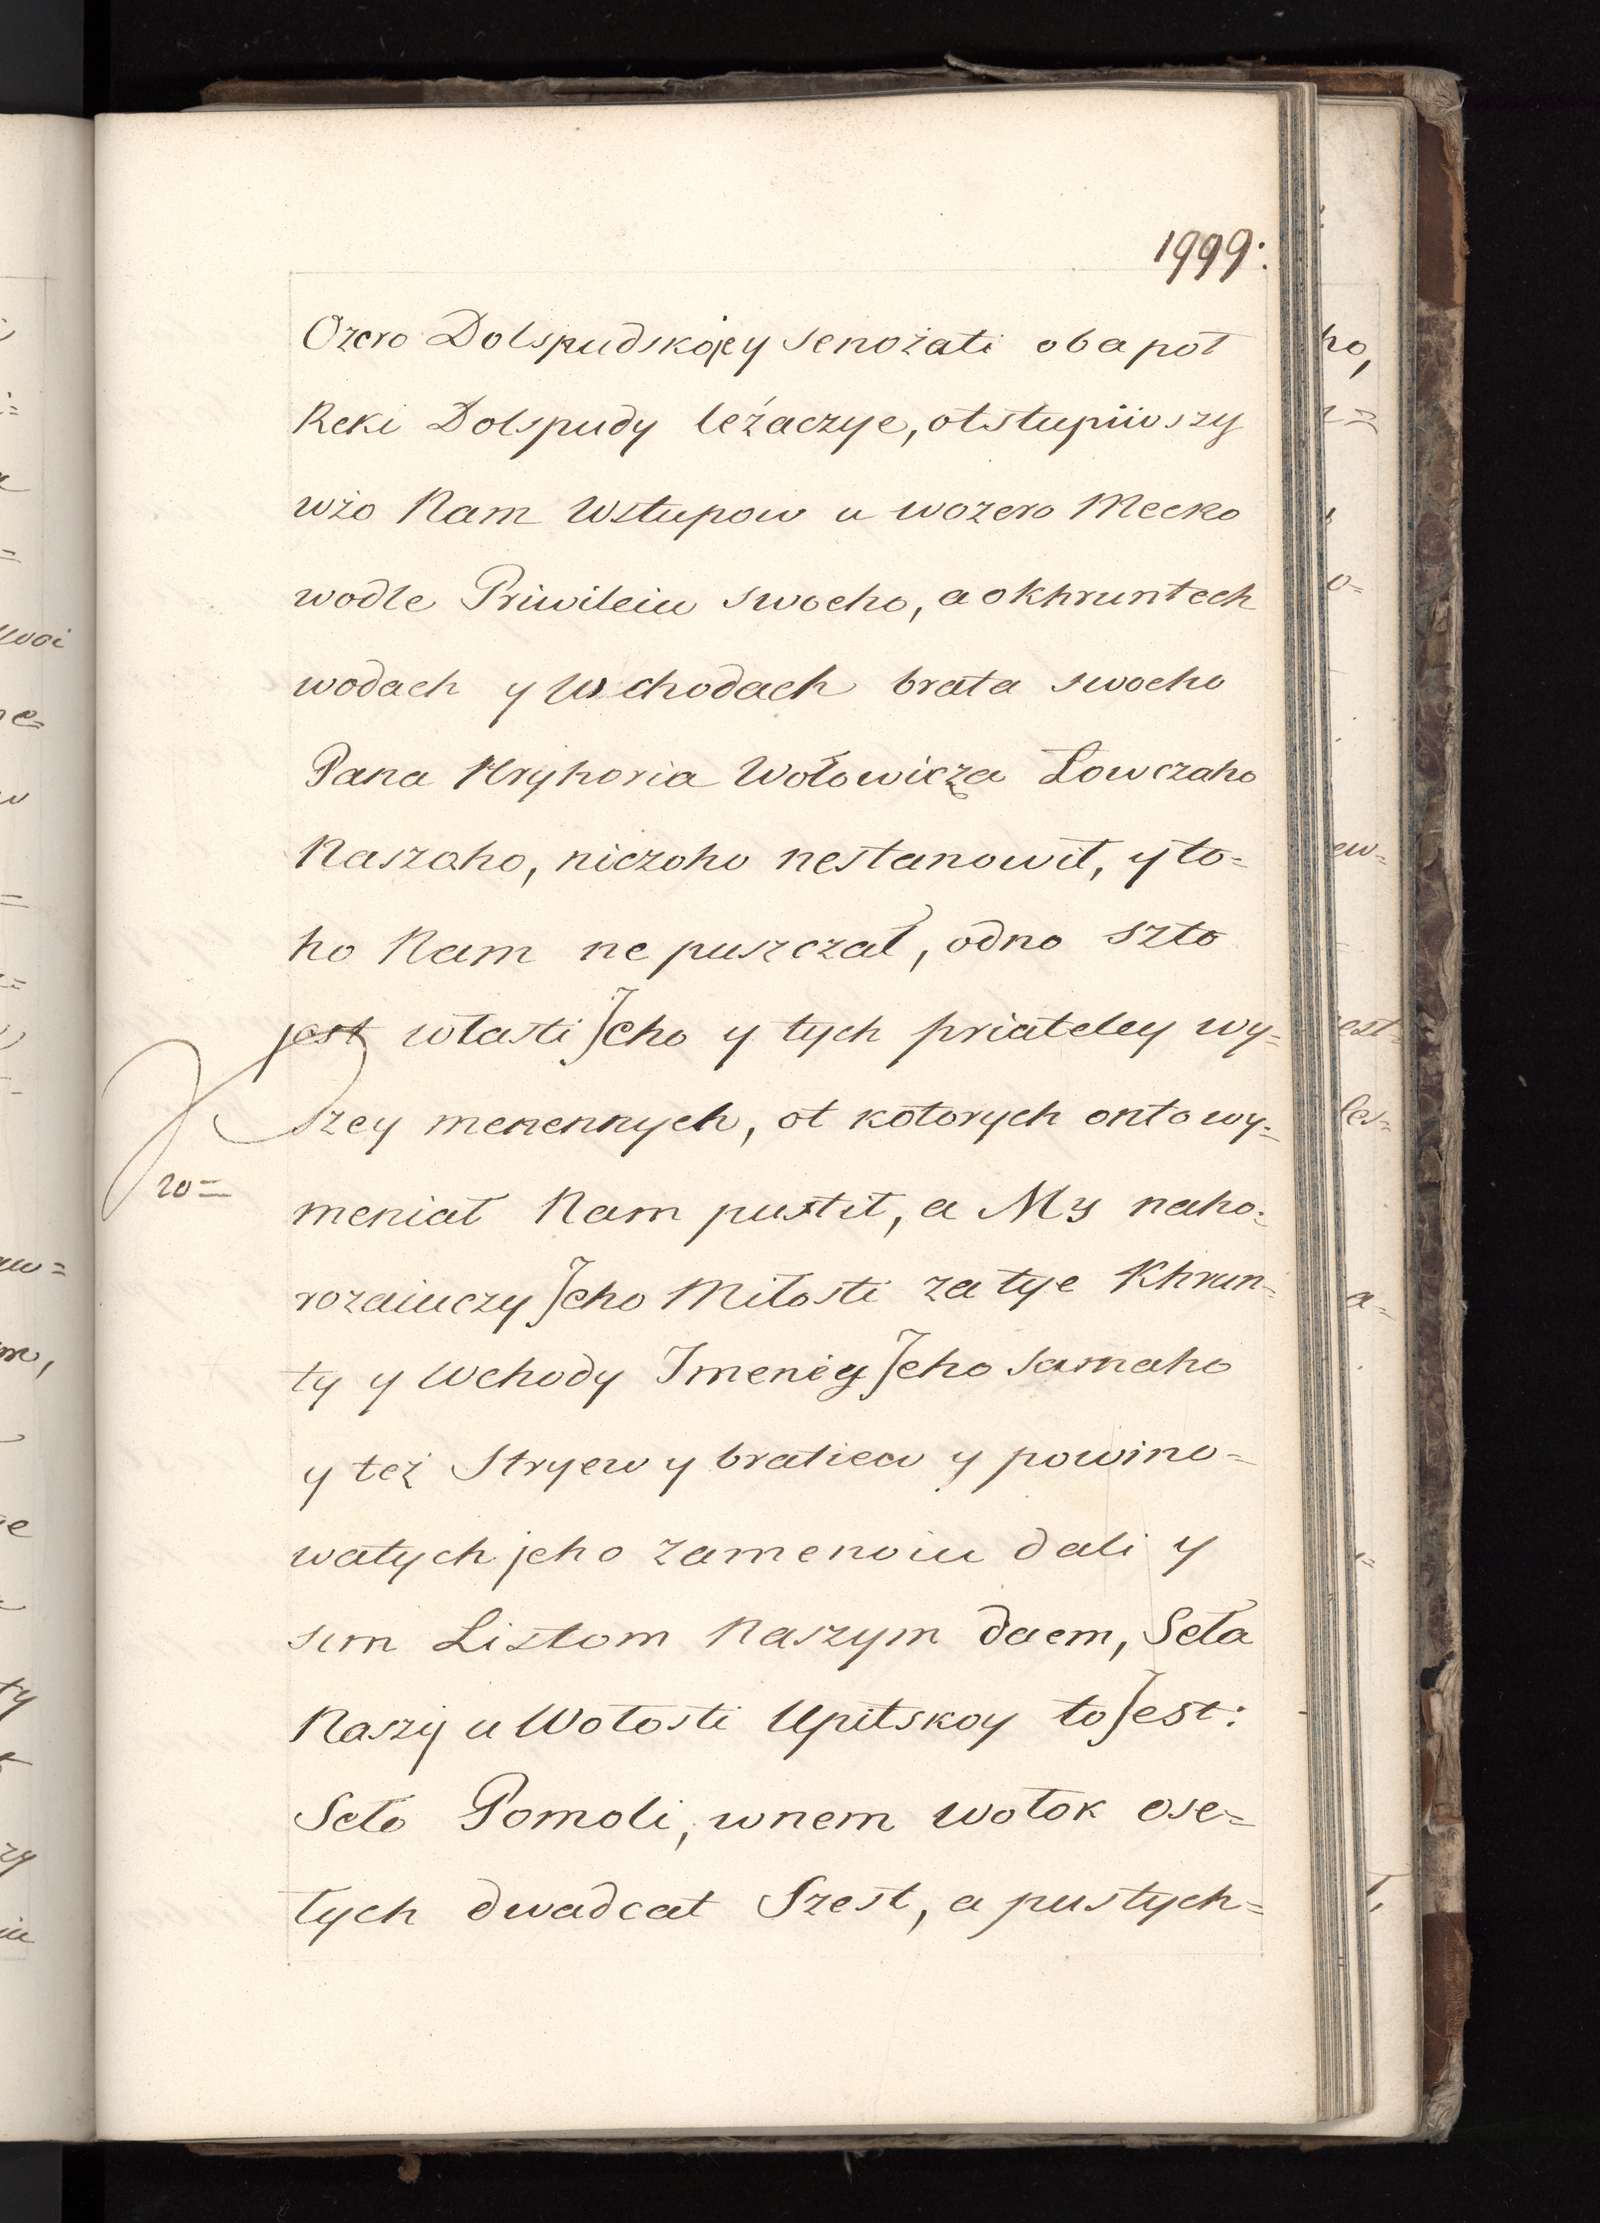 1999:
Ozero Dolspudskoje y senożati oba poł
Reki Dolspudy leżaczye, otstupiiwszy
wżo Nam Wstupow u wozero Mecko
wodle Priwileiu swoeho, a o khruntech
wodach y Wchodach brata swoeho
Pana Hryhoria Wołowicza Łowczaho
Naszoho, niczoho nestanowił, y to=
ho Nam ne puszczał, odno szto
jest własti Jeho y tych priateley wy=
szey menennych, ot kotorych onto wy=
20=
meniał Nam pustił, a My naho=
rozaiuczy Jeho Miłosti za tye Khrun=
ty y Wchody Imeniy Jeho samaho
y też Stryew y bratiew y powino=
watych jeho zamenoiu dali y
sim Listom Naszym daem, Seła
Naszy u Wołosti Upitskoy to Jest:
Seło Pomoli, wnem wołok ose=
łych dwadcat Szest, a pustych=